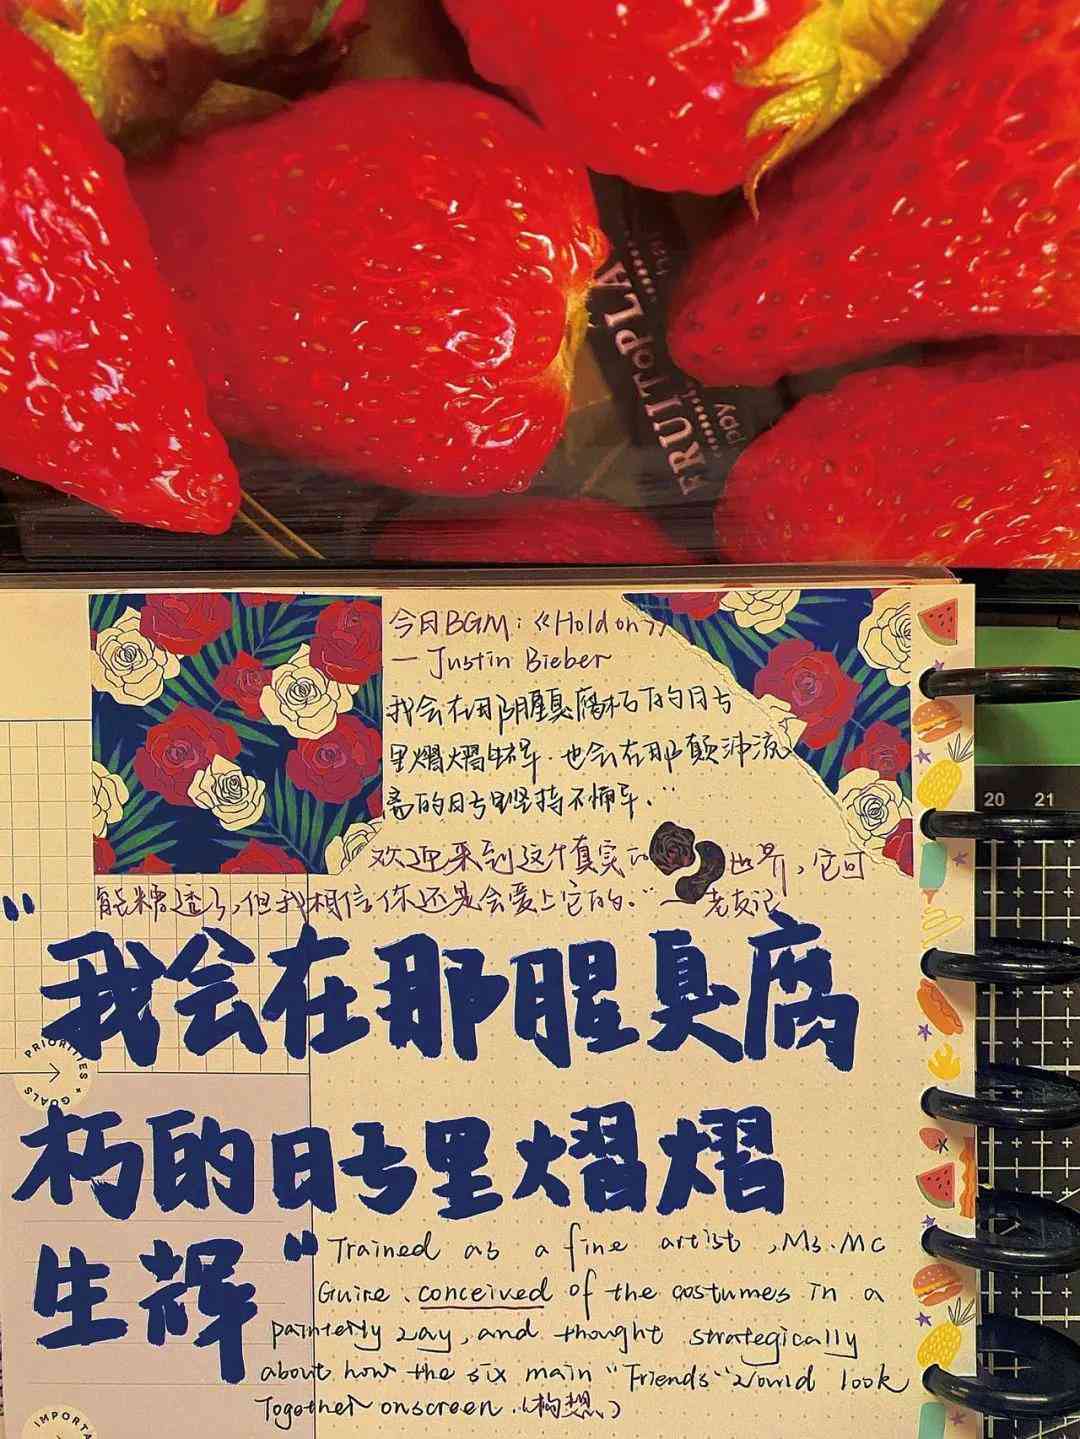 FRUITOPLA
今日BGM:《Hold on》
— Justin Bieber
我会在那腥臭腐朽的日子
里熠熠生辉.也会在那颠沛流
离的日子里坚持不懈.”
欢迎来到这个真实的世界,它可
能糟透了,但我相信你还是会爱上它的。”—老友记
“我会在那腥臭腐
朽的日子里熠熠
生辉”
PRIORITIES + GOALS
Trained as a fine artist, Ms. Mc
Guire, conceived of the costumes in a
painterly way, and thought strategically
about how the six main "Friends" would look
Together onscreen.(构想)
IMPORTA
20 21